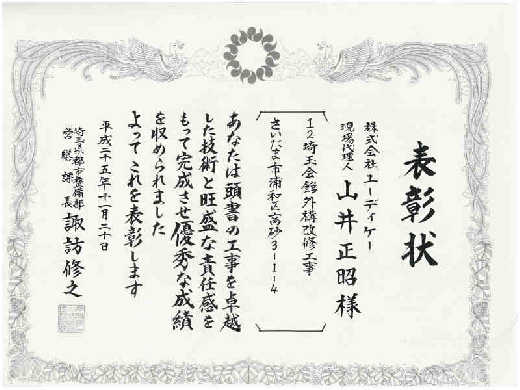 表彰状
株式会社エーディケー
現場代理人 山井正昭様
12埼玉会館外構改修工事
さいたま市浦和区高砂3-1-4
あなたは頭書の工事を卓越
した技術と旺盛な責任感を
もって完成させ優秀な成績
を収められました
よってこれを表彰します
平成二十五年十一月二十日
埼玉県都市整備部
営繕課長 諏訪修之